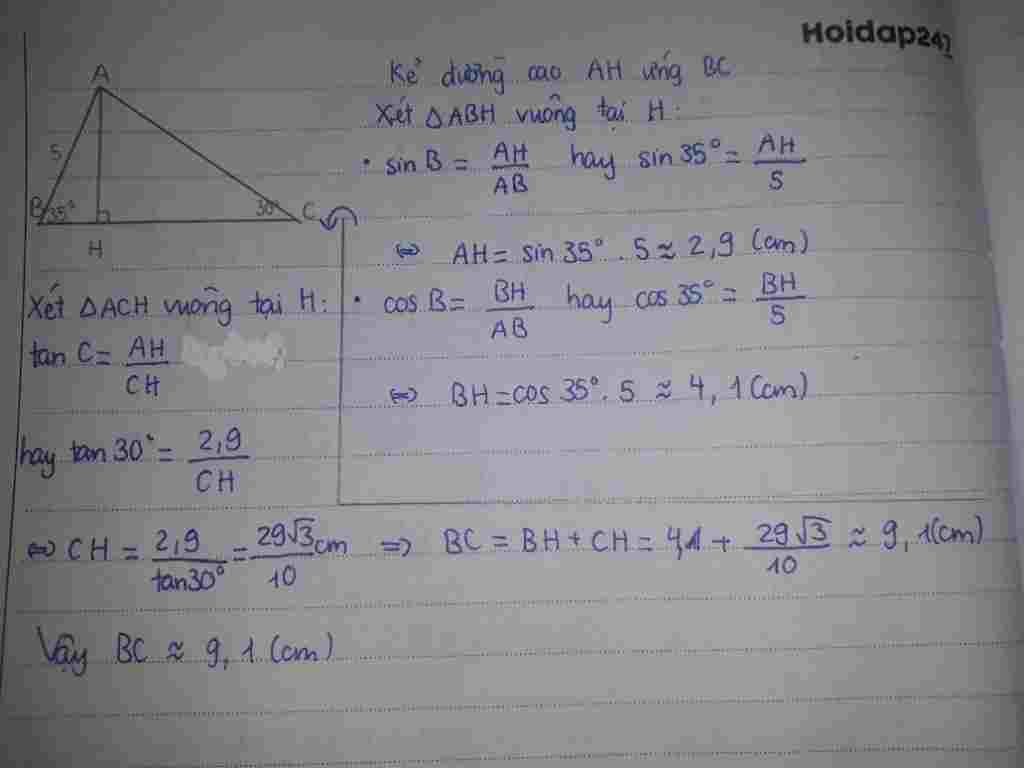 Hoidap247
A
5
B 35°
30° C
H
Kẻ đường cao AH ứng BC
Xét △ABH vuông tại H:
• sin B = AH/AB hay sin 35° = AH/5
⇔ AH = sin 35° . 5 ≈ 2,9 (cm)
• cos B = BH/AB hay cos 35° = BH/5
⇔ BH = cos 35° . 5 ≈ 4,1 (cm)
Xét △ACH vuông tại H:
tan C = AH/CH
hay tan 30° = 2,9/CH
⇔ CH = 2,9/tan30° = 29√3/10 cm ⇒ BC = BH + CH = 4,1 + 29√3/10 ≈ 9,1(cm)
Vậy BC ≈ 9,1 (cm)